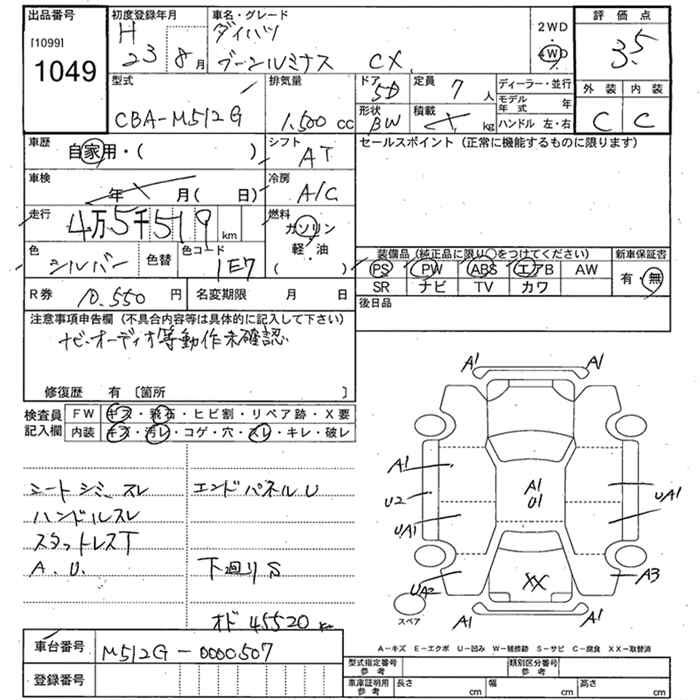 出品番号 初度登録年月 車名・グレード 評価点
[1099] 1049 H 23 8月 ダイハツ ブーンルミナス CX 2WD 4WD 3.5
型式 排気量 ドア 5D 定員 7人 ディーラー・並行 外装 内装
CBA-M512G 1,500cc 形状 BW 積載 kg モデル年式 年 ハンドル 左・右 C C
車歴 自家用・( ) シフト AT セールスポイント (正常に機能するものに限ります)
車検 年 月( 日) 冷房 A/C
走行 4万5千519km 燃料 ガソリン 軽・油 ( )
色 シルバー 色替 色コード 1E7 装備品 (純正品に限り○をつけてください) 新車保証書
PS PW ABS エアB AW 有・無
SR ナビ TV カワ
R券 10,550円 名変期限 月 日 後日品
注意事項申告欄 (不具合内容等は具体的に記入して下さい)
ナビ・オーディオ等動作未確認
修復歴 有 [箇所 ]
検査員記入欄 FW キズ・飛石・ヒビ割・リペア跡・X要
内装 キズ・汚レ・コゲ・穴・スレ・キレ・破レ
シートシミ、スレ エンドパネルU
ハンドルスレ
スタットレスT
A.U. 下廻りS
オド45520km
A1 A1
A1
U2 A1 U1 UA1
UA1
UA2 XX A3
スペア A1 A1
A-キズ E-エクボ U-凹み W-補修跡 S-サビ C-腐食 XX-取替済
車台番号 M512G-0000507
型式指定番号 参考 類別区分番号 参考
登録番号 車庫証明用 参考 長さ cm 幅 cm 高さ cm